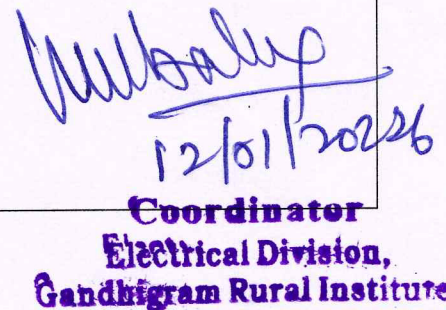 12/01/2026
Coordinator
Electrical Division,
Gandhigram Rural Institute